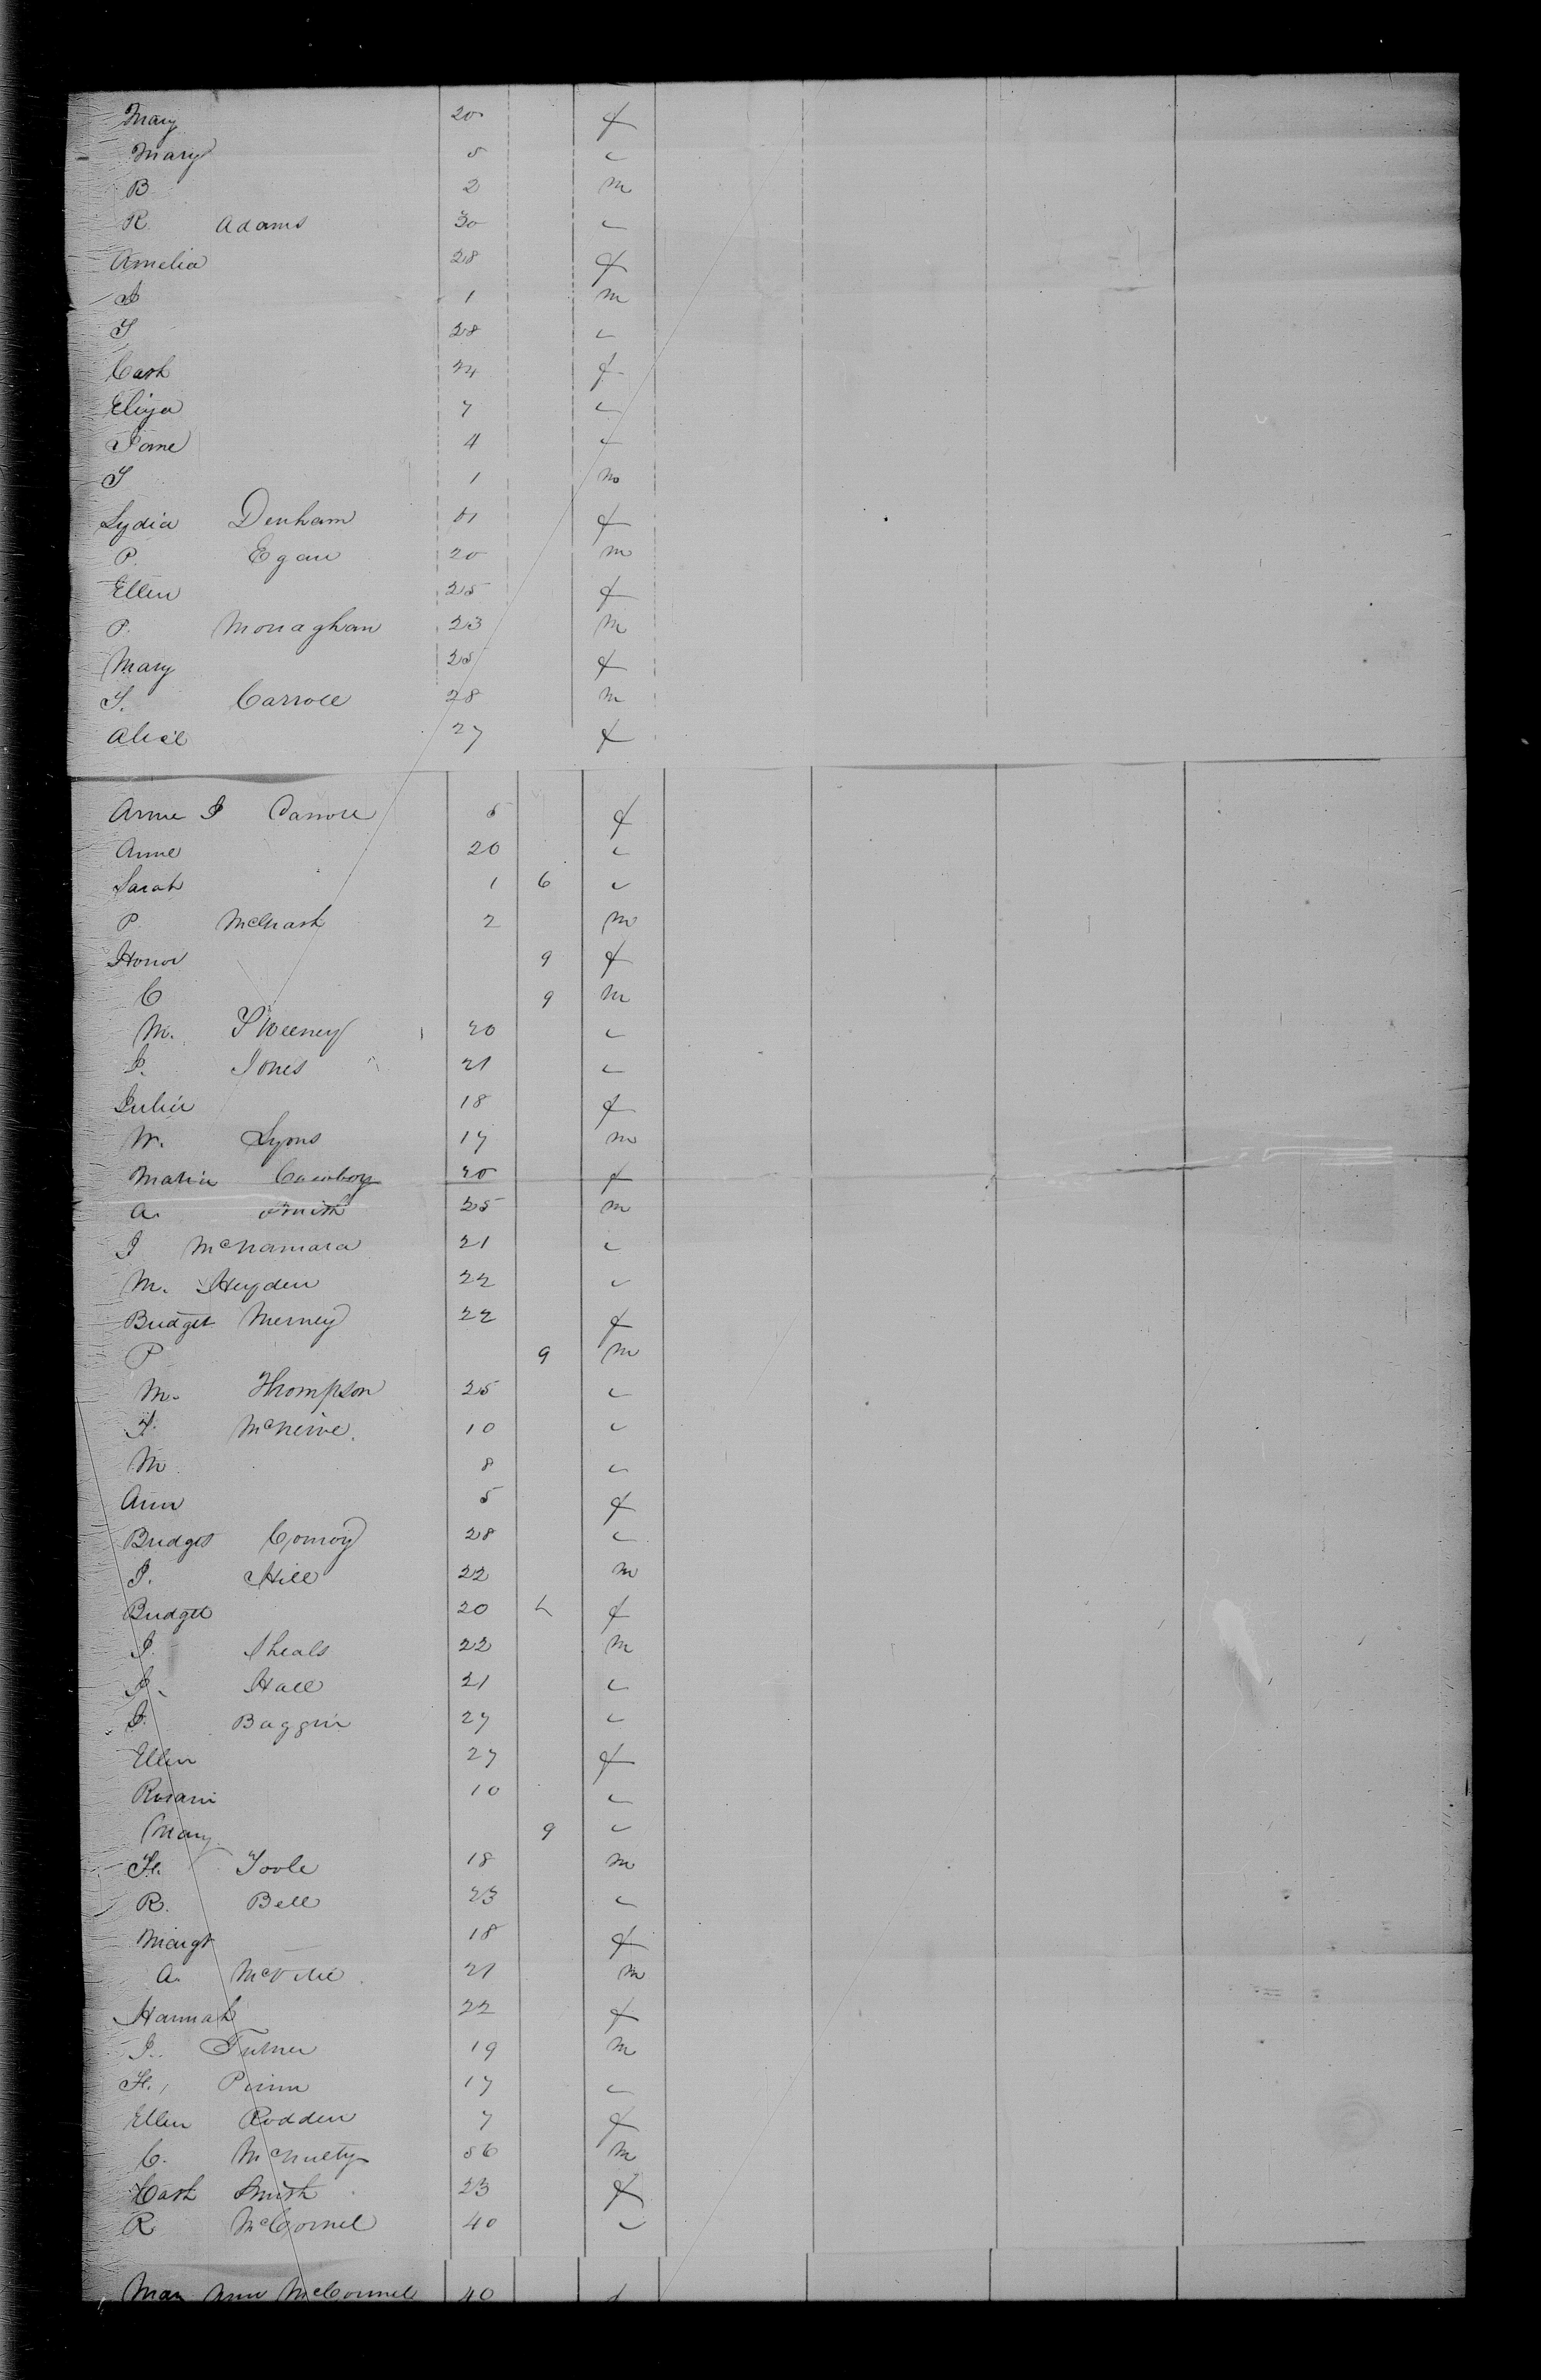 Mary 20 f
Mary 5 "
B 2 m
R Adams 30 "
Amelia 28 f
J 1 m
T 28 "
Cath 24 f
Eliza 7 "
Jane 4 "
T 1 m
Lydia Denham 51 f
P. Egan 20 m
Ellen 25 f
P. Monaghan 23 m
Mary 25 f
T. Carroll 28 m
Alice 27 f
Anne J Carroll 5 f
Anne 20 "
Sarah 1 6 "
P McGrath 2 m
Honor 9 f
C 9 m
M. Sweeney 20 "
J. Jones 21 "
Julia 18 f
W. Lyons 17 m
Maria 20 f
A. Smith 25 m
J McNamara 21 "
M. Heyden 22 "
Bridget Merney 22 f
P 9 m
M. Thompson 25 "
T. 10 "
M 8 "
Ann 5 f
Bridget Conroy 28 "
J. Hill 22 m
Bridget 20 f
J. Sheals 22 m
J. Hall 21 "
J. Baggin 27 "
Ellen 27 f
10 "
Mary 9 "
H. Toole 18 m
R. Bell 23 "
Margt 18 f
A. 21 m
Hannah 22 f
J. Turner 19 m
H. 17 "
Ellen Rodden 7 f
C. McNulty 56 m
Cath Smith 23 f
R McConnel 40 "
Mary Ann McConnel 40 f